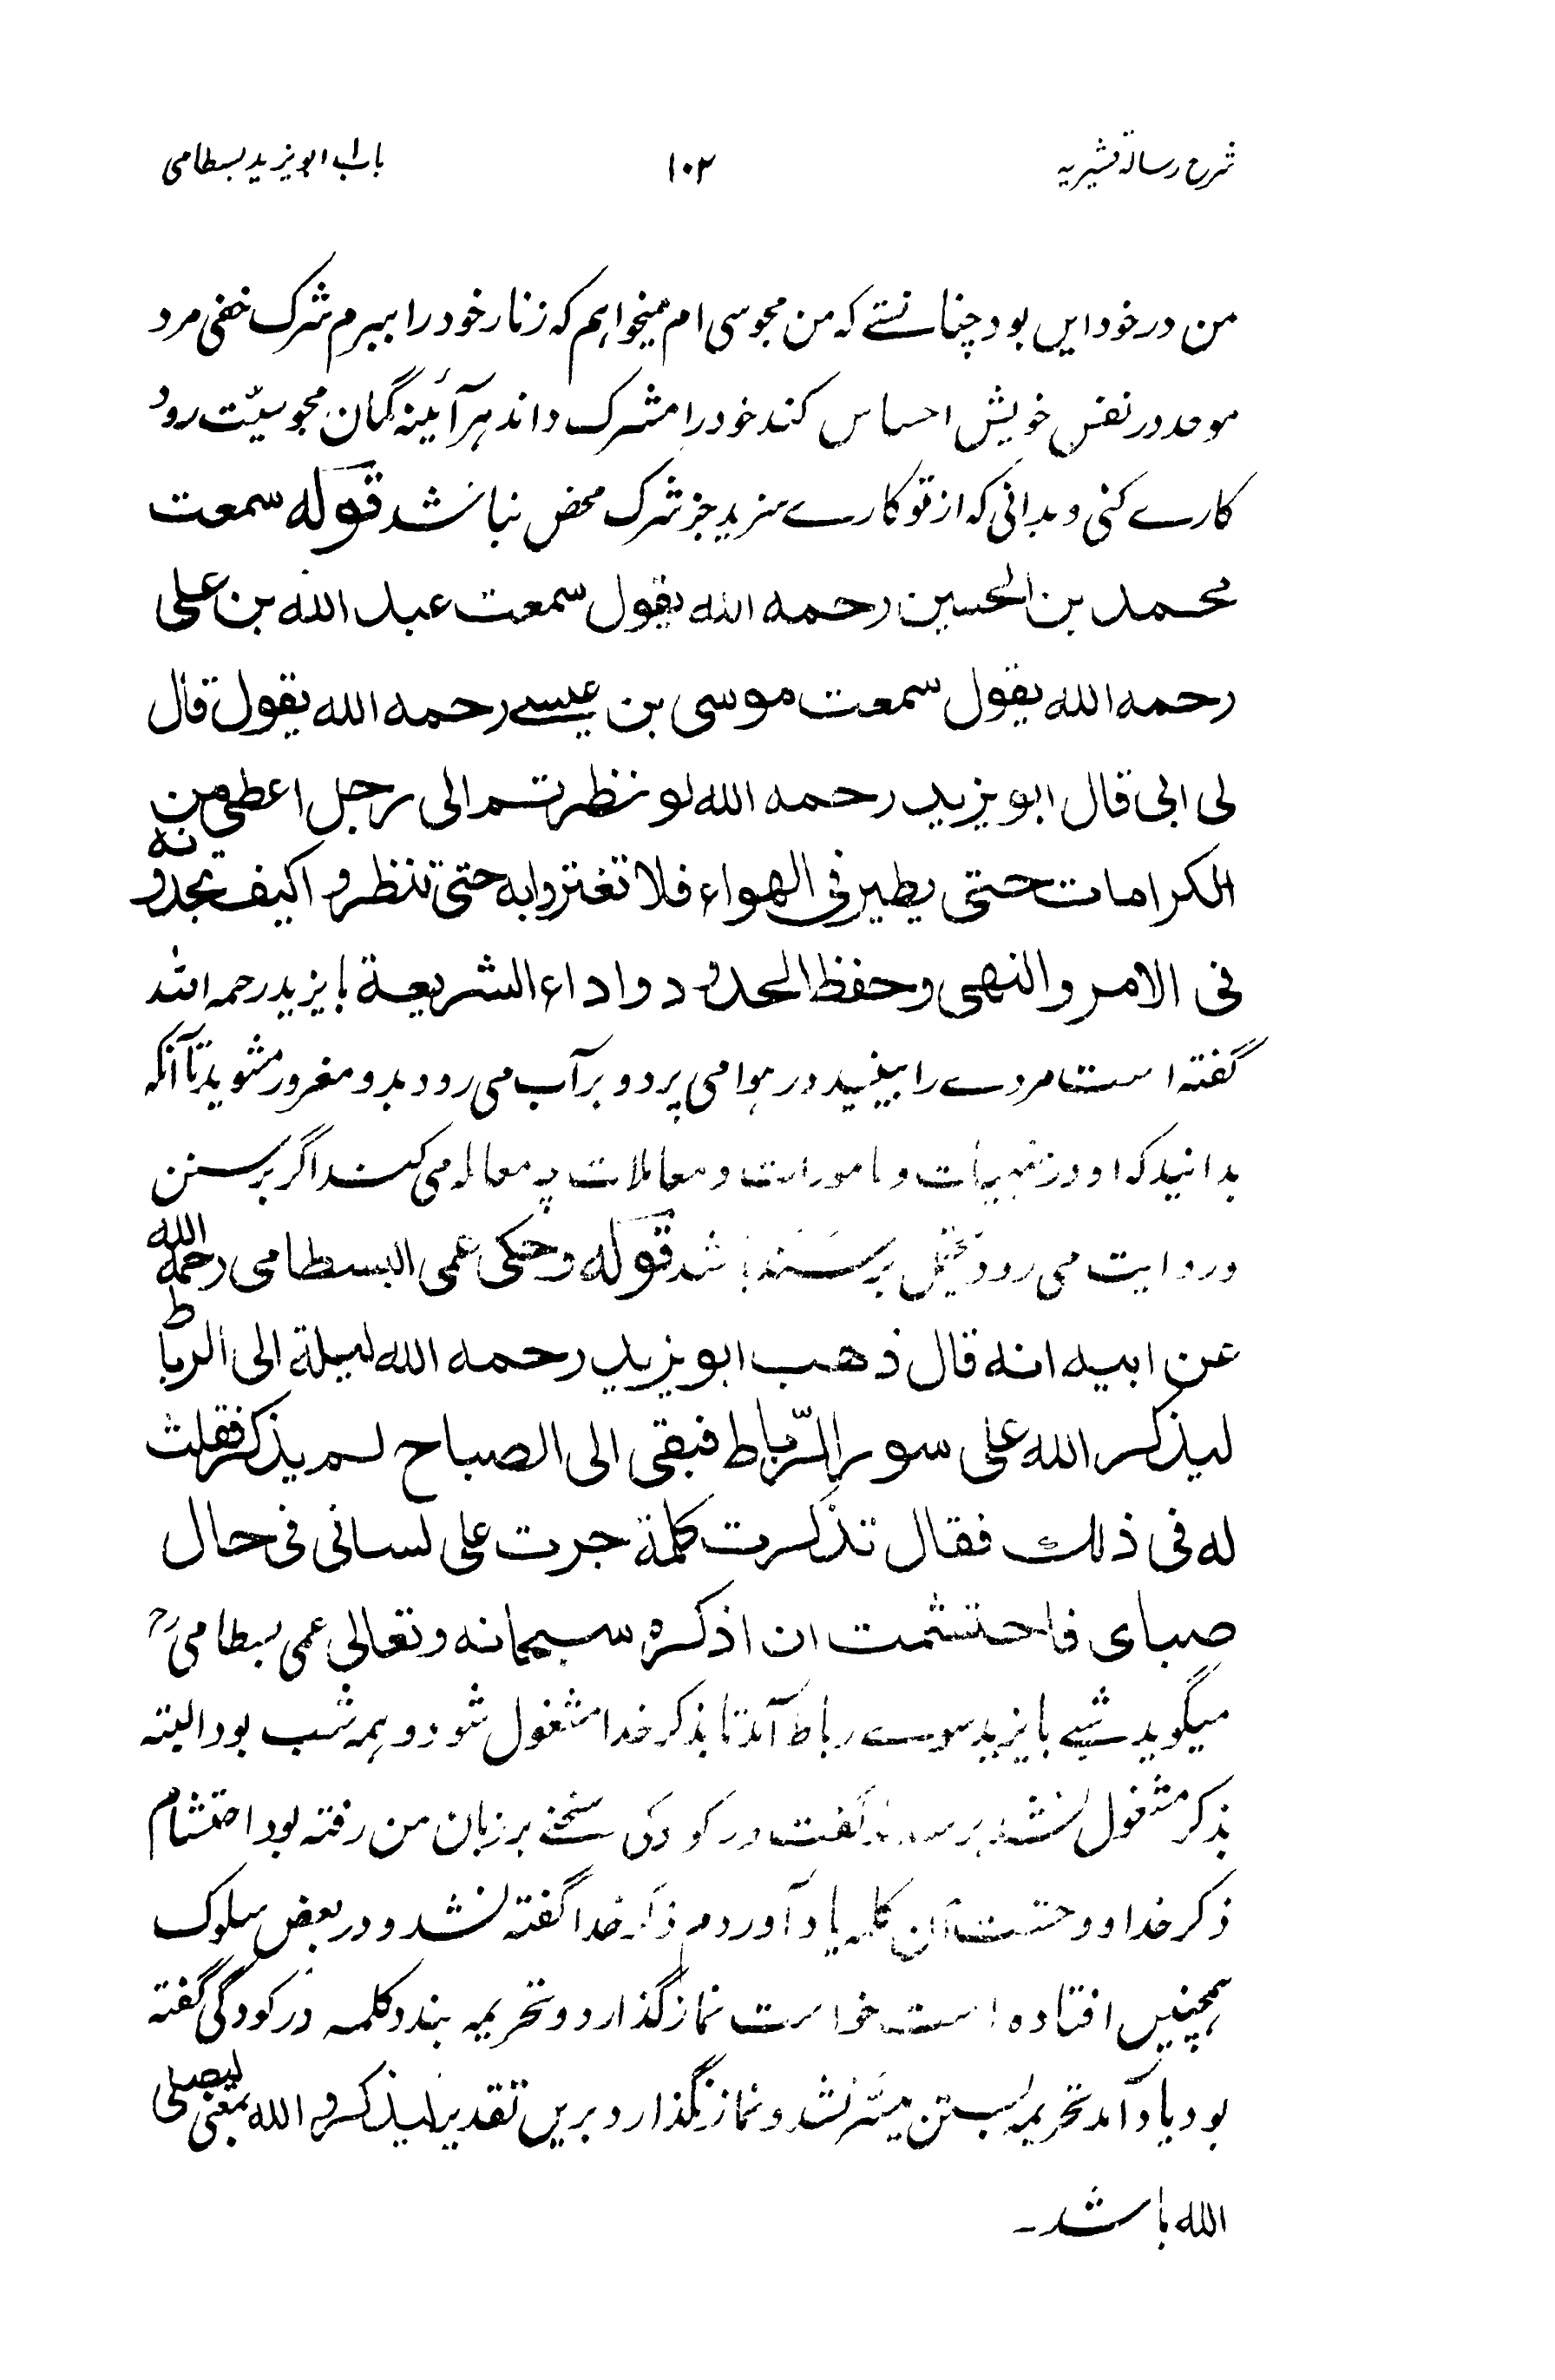 شرح رسالۂ قشیریہ
۱۰۲
باب ابویزید بسطامی
من در خود ایں بود چنانستے کہ من مجوسی ام میخواہم کہ زنار خود را ببرم شرک خفی مرد
موحد در نفس خویش احساس کند خود را مشرک داند ہر آئینہ گمان مجوسیّت رود
کارے کنی و بدانی کہ از تو کارے سزید جز شرک محض نباشد قوله سمعت
محمد بن الحسین رحمه الله یقول سمعت عبد الله بن علی
رحمه الله یقول سمعت موسی بن عیسے رحمه الله یقول قال
لی ابی قال ابو یزید رحمه الله لو نظرتم الی رجل اعطی من
الکرامات حتی یطیر فی الهواء فلا تغتروا به حتی تنظروا کیف تجدونه
فی الامر والنهی وحفظ الحدود واداء الشریعة بایزید رحمہ اللہ
گفتہ است مردے را ببینید در ہوا می پرد و بر آب می رود بدو مغرور مشوید تا آنکہ
بدانید کہ او در منہیات و مامورات و معاملات چہ معاملہ می کند اگر بر سنن
و روایت می رود بر باشد قوله وحکی عمی البسطامی رحمه الله
عن ابیه انه قال ذهب ابو یزید رحمه الله لیلة الی الرباط
لیذکر الله علی سور الرّباط فبقی الی الصباح لم یذکر فقلت
له فی ذلك فقال تذکرت کلمة جرت علی لسانی فی حال
صبای فاحتشمت ان اذکره سبحانه وتعالی عمی بسطامیؒ
میگوید شبے بایزید سوے رباط آمد تا بذکر خدا مشغول شود و ہمہ شب بود البتہ
بذکر مشغول نشد گفت در کودکی سخنے بر زبان من رفتہ بود احتشام
ذکر خدا و وحشت آن کلمہ یاد آوردم ذکر خدا گفتہ نشد و در بعض سلوک
ہمچنیں افتادہ است خواست نماز گذارد و تحریمہ بندد کلمہ در کودگی گفتہ
بود یاد آمد تحریمہ بستن میسّر نشد و نماز نگذارد و بریں تقدیر لیذکر الله بمعنی لیصلی
الله باشد۔